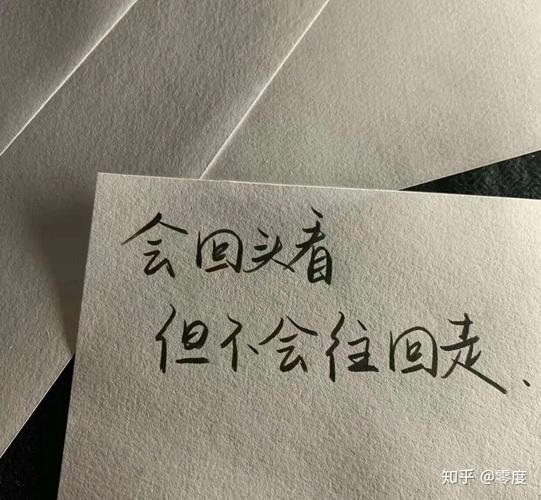 会回头看
但不会往回走、
知乎 @零度